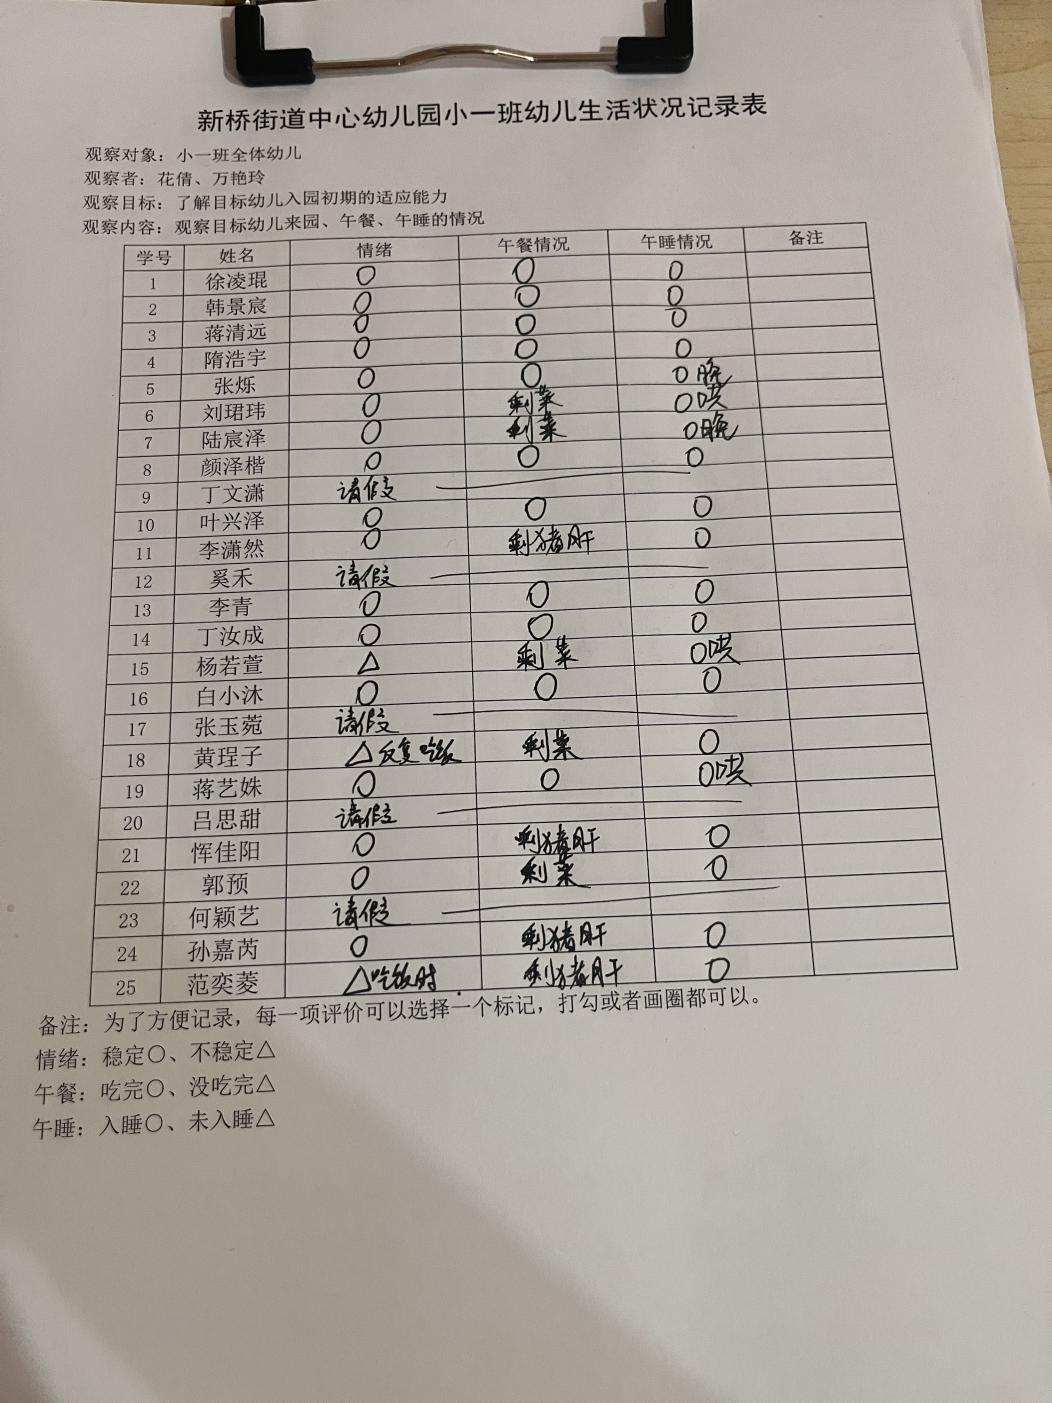 新桥街道中心幼儿园小一班幼儿生活状况记录表
观察对象：小一班全体幼儿
观察者：花倩、万艳玲
观察目标：了解目标幼儿入园初期的适应能力
观察内容：观察目标幼儿来园、午餐、午睡的情况
学号 姓名 情绪 午餐情况 午睡情况 备注
1 徐凌琨 〇 〇 〇
2 韩景宸 〇 〇 〇
3 蒋清远 〇 〇 〇
4 隋浩宇 〇 〇 〇
5 张烁 〇 〇 〇晚
6 刘珺玮 〇 剩菜 〇哄
7 陆宸泽 〇 剩菜 〇晚
8 颜泽楷 〇 〇 〇
9 丁文潇 请假
10 叶兴泽 〇 〇 〇
11 李潇然 〇 剩猪肝 〇
12 奚禾 请假
13 李青 〇 〇 〇
14 丁汝成 〇 〇 〇
15 杨若萱 △ 剩菜 〇哄
16 白小沐 〇 〇 〇
17 张玉菀 请假
18 黄珵子 △反复吃饭 剩菜 〇
19 蒋艺姝 〇 〇 〇哄
20 吕思甜 请假
21 恽佳阳 〇 剩猪肝 〇
22 郭预 〇 剩菜 〇
23 何颖艺 请假
24 孙嘉芮 〇 剩猪肝 〇
25 范奕菱 △吃饭时 剩猪肝 〇
备注：为了方便记录，每一项评价可以选择一个标记，打勾或者画圈都可以。
情绪：稳定〇、不稳定△
午餐：吃完〇、没吃完△
午睡：入睡〇、未入睡△